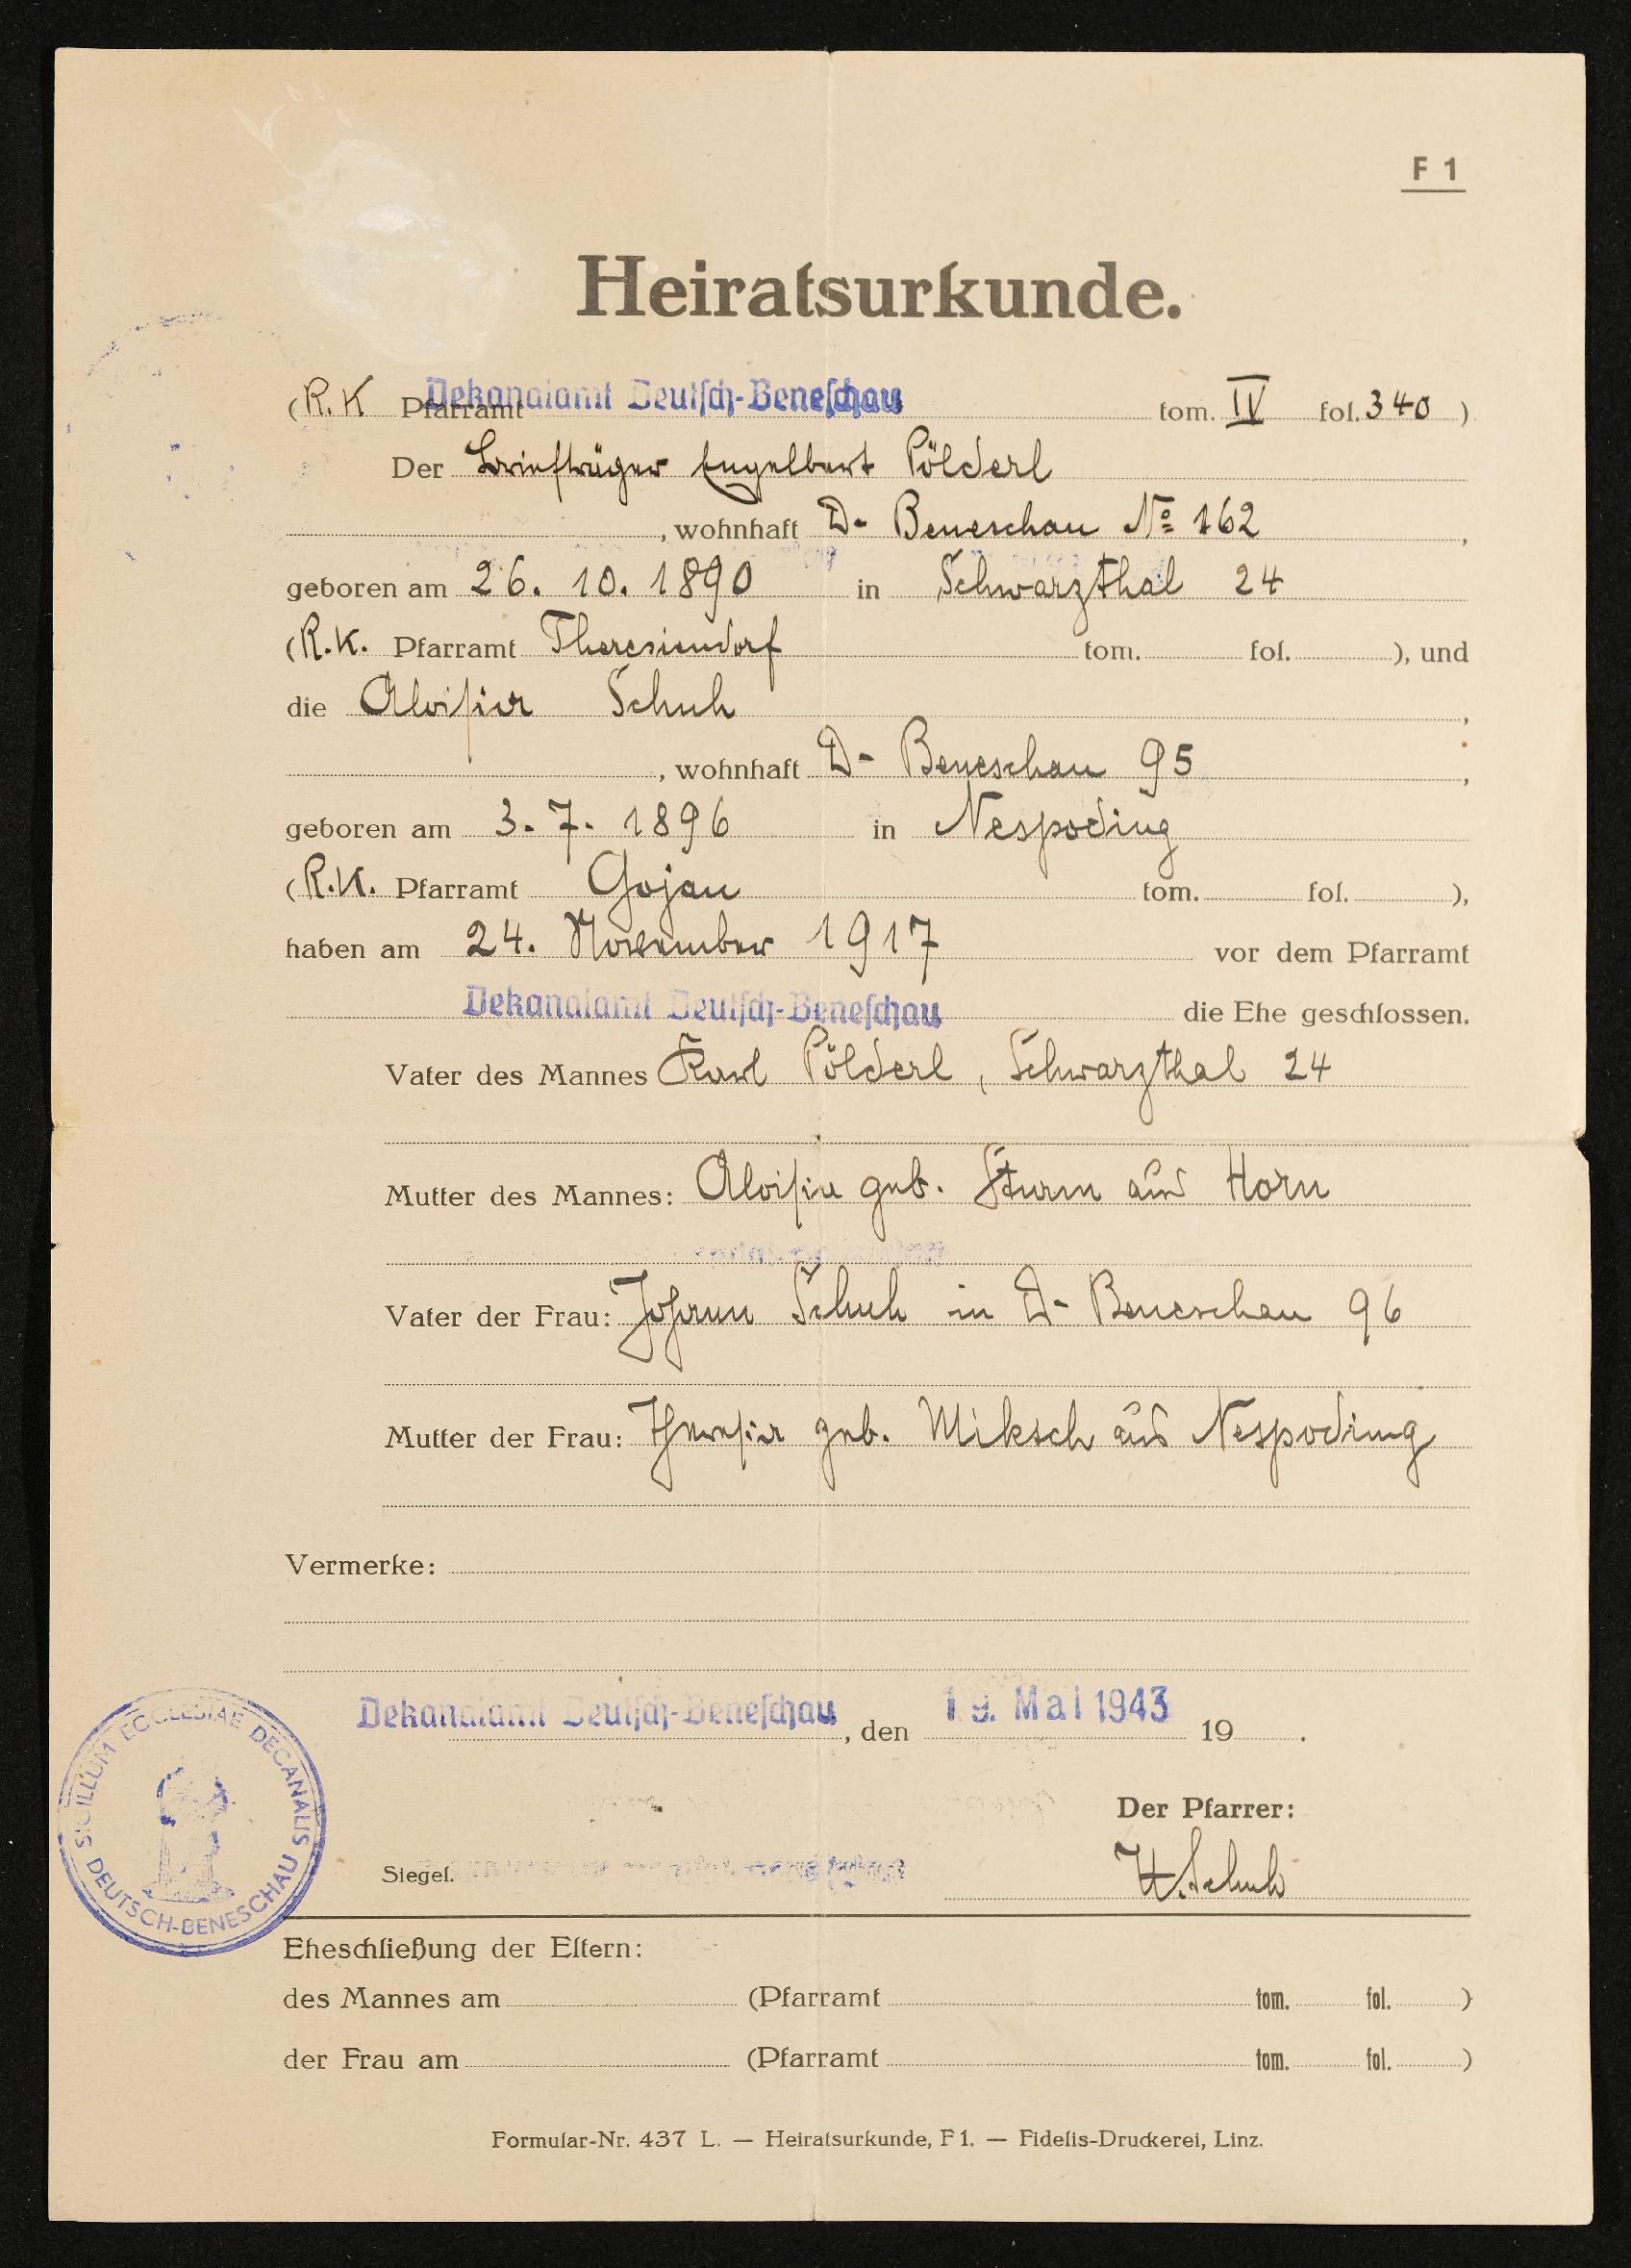 F 1
Heiratsurkunde.
(R.K Pfarramt Dekanalamt Deutsch-Beneschau tom. IV fol. 340 )
Der Briefträger Engelbert Pölderl
, wohnhaft D- Beneschau Nº 162 ,
geboren am 26. 10. 1890 in Schwarzthal 24
(R.K. Pfarramt Theresiendorf tom. fol. ), und
die Aloisia Schuh ,
, wohnhaft D- Beneschau 95 ,
geboren am 3. 7. 1896 in Nespoding
(R.K. Pfarramt Gojau tom. fol. ),
haben am 24. November 1917 vor dem Pfarramt
Dekanalamt Deutsch-Beneschau die Ehe geschlossen.
Vater des Mannes Karl Pölderl, Schwarzthal 24
Mutter des Mannes: Aloisia geb. Sturm aus Horn
Vater der Frau: Johann Schuh in D- Beneschau 96
Mutter der Frau: Theresia geb. Miksch aus Nespoding
Vermerke:
Dekanalamt Deutsch-Beneschau, den 19. Mai 1943 19 .
SIGILLUM ECCLESIAE DECANALIS DEUTSCH-BENESCHAU
Der Pfarrer:
Siegel.
Schuh
Eheschließung der Eltern:
des Mannes am (Pfarramt tom. fol. )
der Frau am (Pfarramt tom. fol. )
Formular-Nr. 437 L. — Heiratsurkunde, F 1. — Fidelis-Druckerei, Linz.